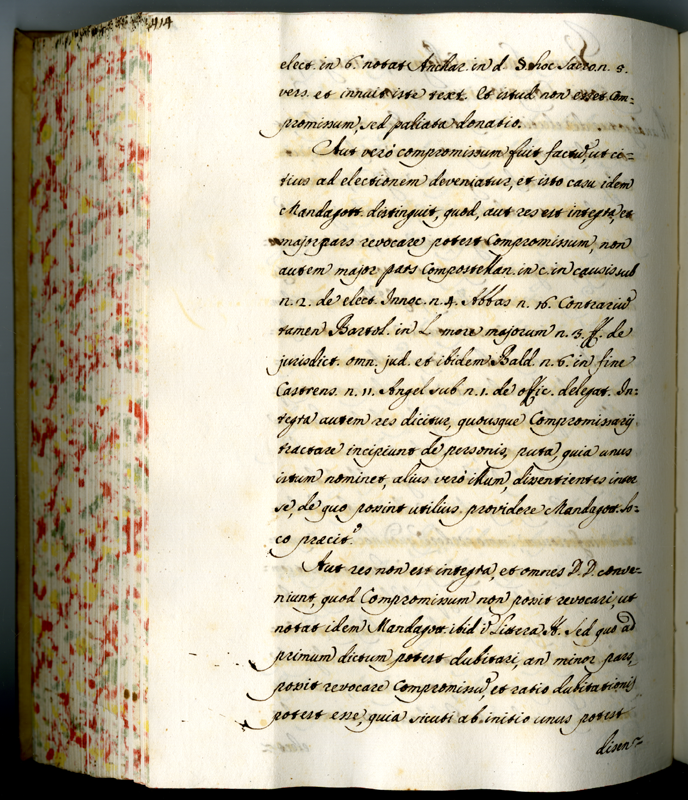 414
elect. in 6. notat Anchar. in d. § hoc Sacro. n. 5.
vers. et innuit iste text. Et istud non esset Com=
promissum, sed paliata donatio.
Aut verò compromissum fuit factũ, ut ci=
tius ad electionem deveniatur, et isto casu idem
Mandagott. distinguit, quod, aut res est integra, et
major pars revocare potest Compromissum, non
autem major pars Compostellan. in c. in causis sub
n. 2. de elect. Innoc. n. 4. Abbas n. 16. Contrariũ
tamen Bartol. in L. more majorum n. 3. ff. de
jurisdict. omn. jud. et ibidem Bald. n. 6. in fine
Castrens. n. 11. Angel sub n. 1. de offic. delegat. In=
tegra autem res dicitur, quousque Compromissarij
tractare incipiunt de personis, puta, quia unus
istum nominet, alius verò illum, dissentientes inter
se, de quo possint utilius providere Mandagott. lo=
co præcit.º
Aut res non est integra, et omnes D.D. conve=
niunt, quod Compromissum non possit revocari, ut
notat idem Mandagott. ibid Littera Sed quo ad
primum dictum potest dubitari, an minor pars,
possit revocare Compromissũ, et ratio dubitationis
potest esse, quia sicuti ab initio unus potest
disen=